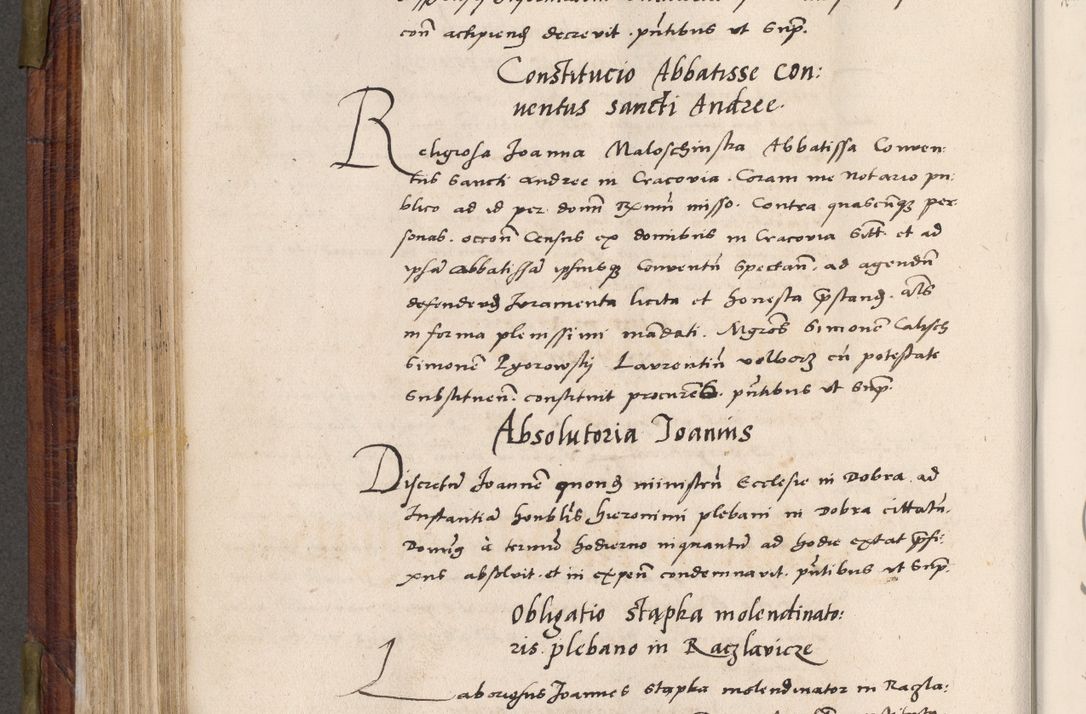 con̄ actipiend decrevit. pn̄tibus ut Sup̄.
Constitucio Abbatisse Con:
ventus sancti Andree.
Religiosa Joanna Maloschinska Abbatissa Conven:
tus Sancti Andree in Cracovia. Coram me Notario pu:
blico ad id per domn̄ Rx̄mn̄ misso. Contra quascūq3 per
sonas. occon̄ Census ex domibus in Cracovia Sitt̄. et ad
ipsā Abbatissā ipsiusq3 Conventū Spectan̄. ad agendū
defendend Juramenta licita et honesta p̄stand. a͞cts
in forma plenissimi mādati. Mgros Simonē Calisch
Simonē Zgorowsky Laurentiū wolborz cū potestate
Substituen̄. constituit procures. pn̄tibus ut Sup̄.
Absolutoria Joannis
Discretū Joannē quond ministrū Ecclesie in Dobra. ad
Instantiā honblis hieronimi plebani in Dobra cittatū.
Domig à termio hodierno inquantū ad hodie extat p̄fi:
xus absolvit. et in expen̄ condemnavit. pn̄tibus ut Sup̄.
Obligatio stapka molendinato:
ris plebano in Raczlavicze
Laboriosus Joannes Stapka molendinator in Razla: